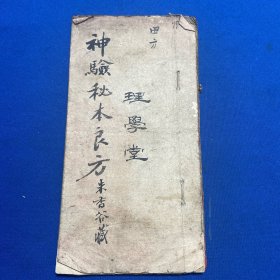 田方
理學堂
神驗秘本良方
朱杏谷藏